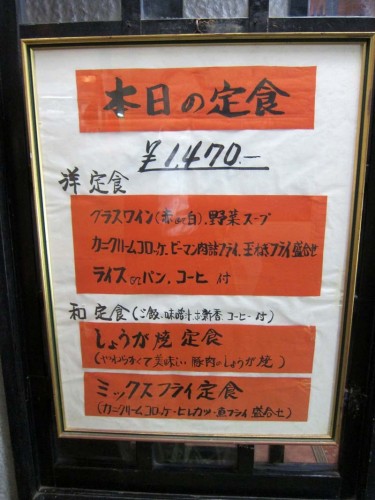 本日の定食
¥1,470.—
洋定食
グラスワイン(赤又は白)、野菜スープ
カニクリームコロッケ、ピーマン肉詰フライ、玉ネギフライ盛合せ
ライス又はパン、コーヒー付
和定食(ご飯、味噌汁、お新香、コーヒー付)
しょうが焼定食
(やわらかくて美味しい豚肉のしょうが焼)
ミックスフライ定食
(カニクリームコロッケ・ヒレカツ・魚フライ盛合せ)